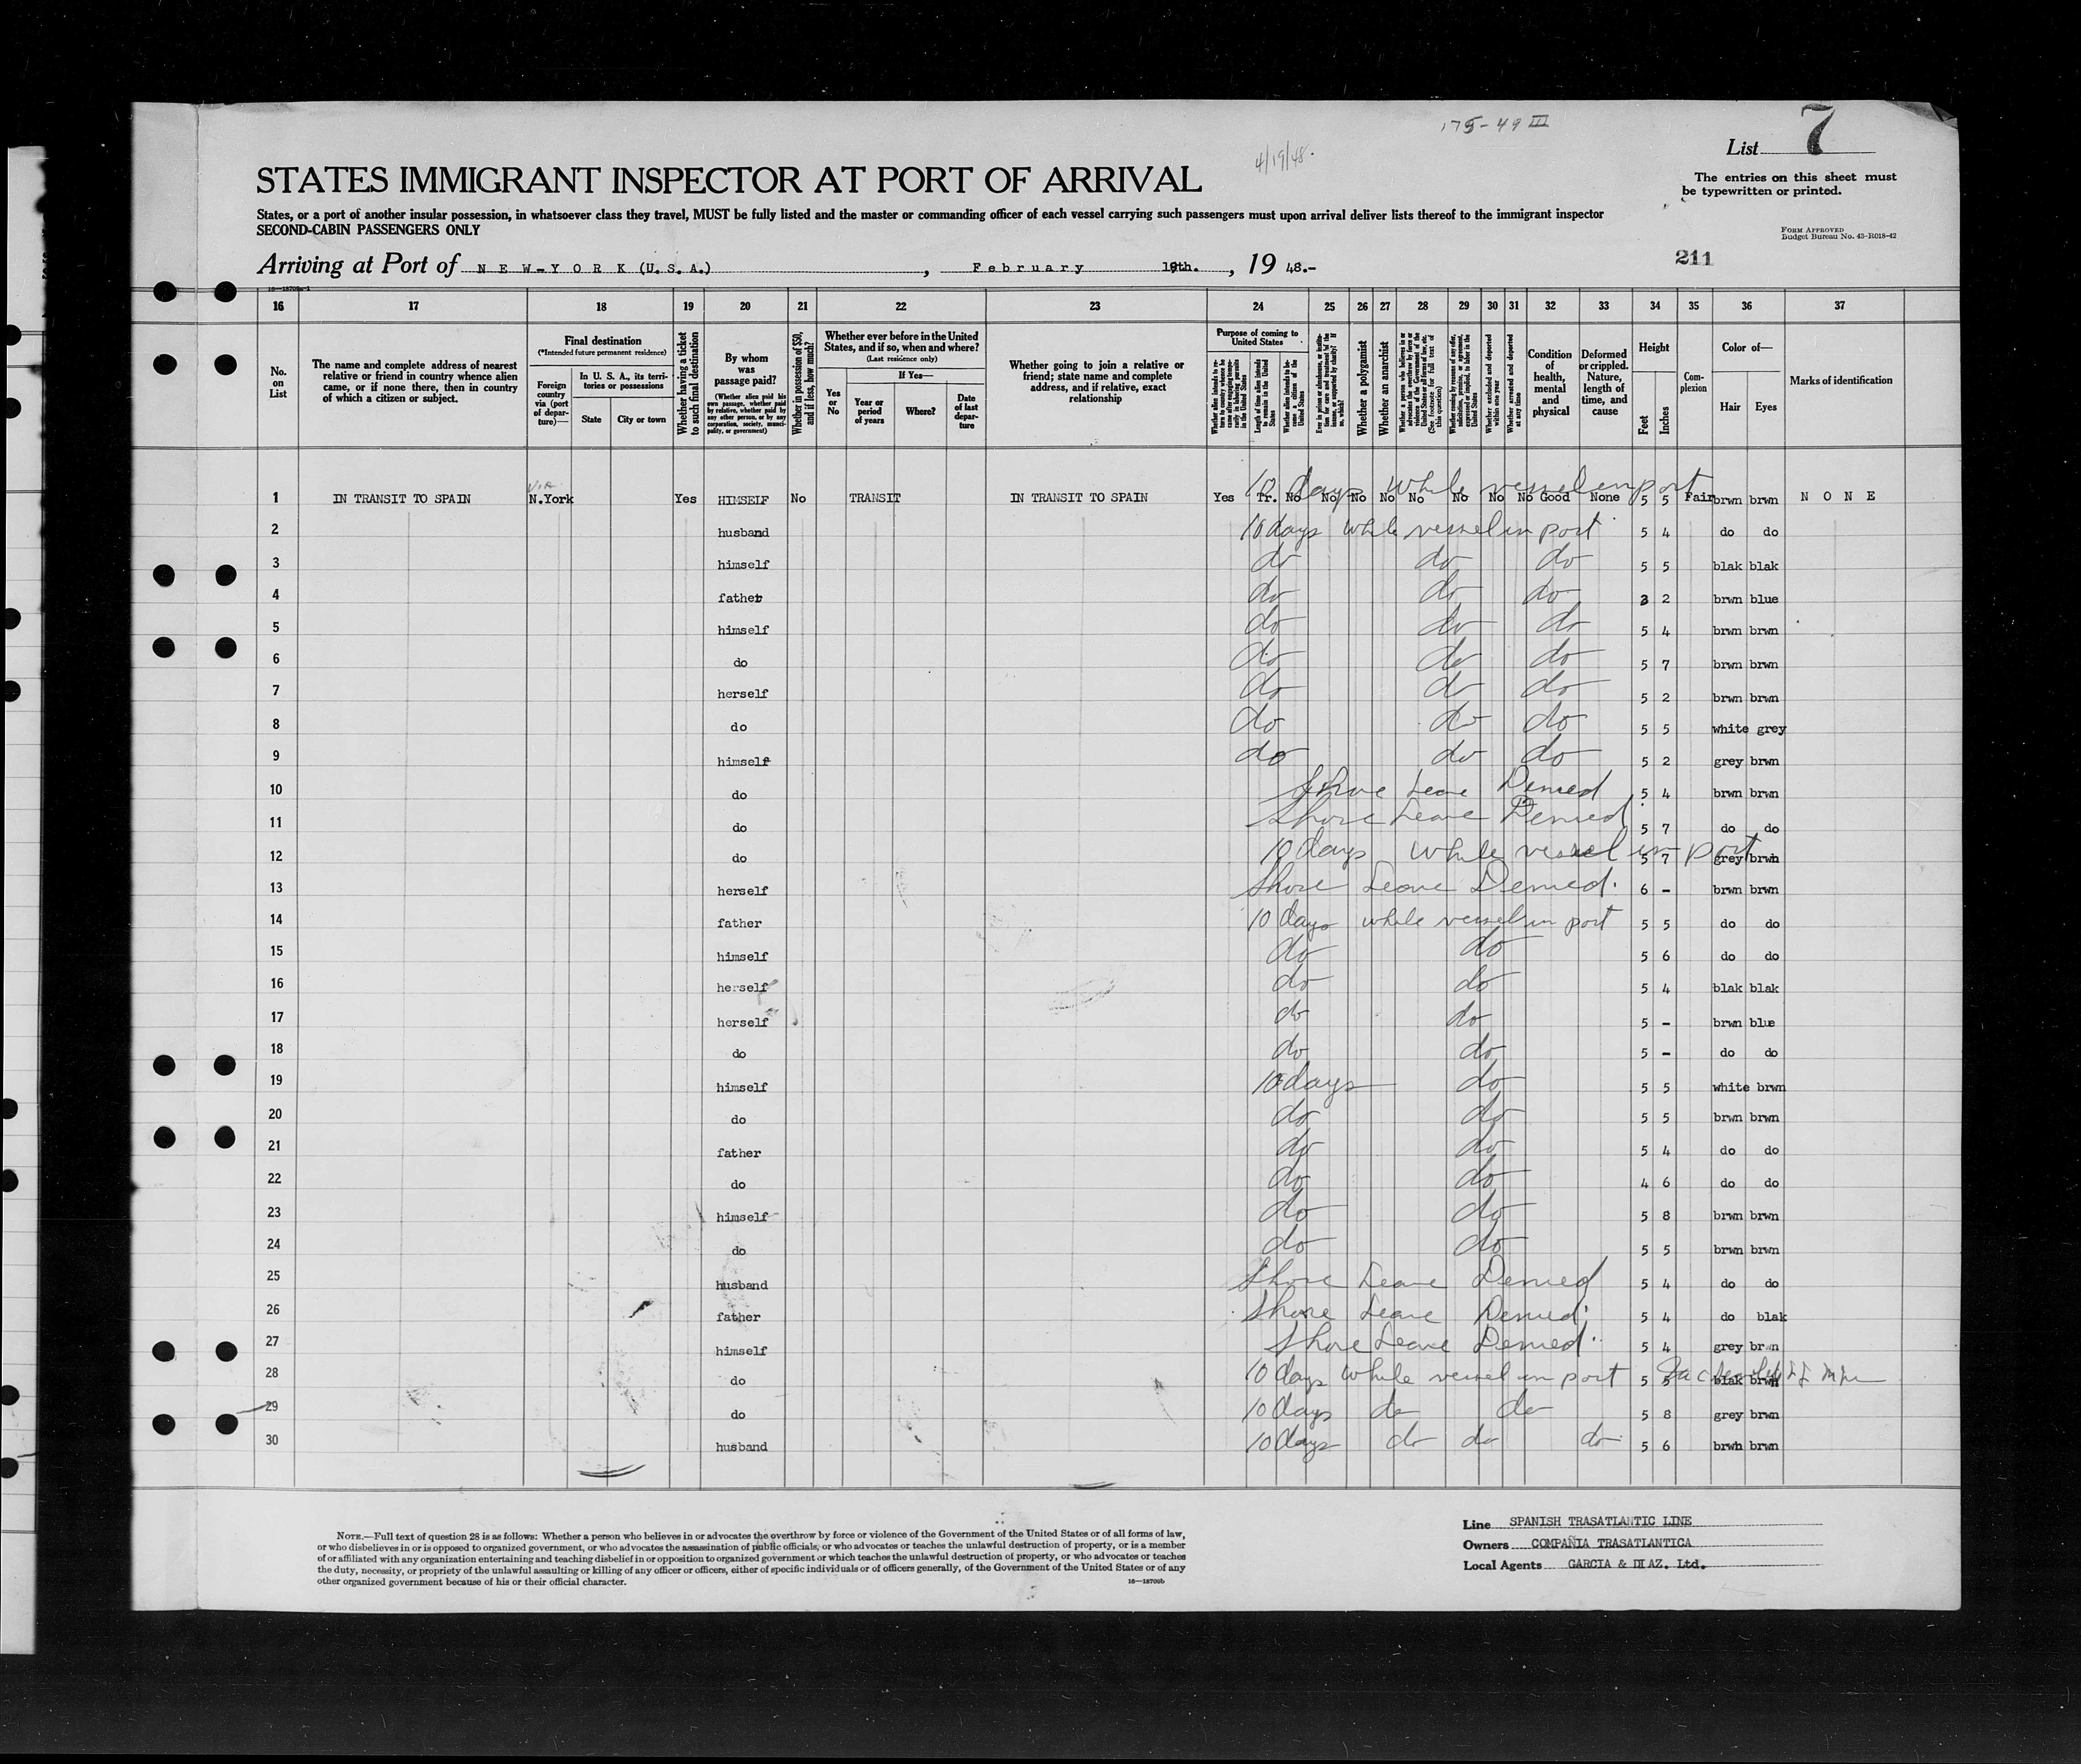 175-49 III
4/19/48.
List 7
STATES IMMIGRANT INSPECTOR AT PORT OF ARRIVAL
The entries on this sheet must
be typewritten or printed.
States, or a port of another insular possession, in whatsoever class they travel, MUST be fully listed and the master or commanding officer of each vessel carrying such passengers must upon arrival deliver lists thereof to the immigrant inspector
SECOND-CABIN PASSENGERS ONLY
Form Approved
Budget Bureau No. 43-R018-42
211
Arriving at Port of NEW-YORK (U.S.A.), February 19th., 19 48.-
16 17 18 19 20 21 22 23 24 25 26 27 28 29 30 31 32 33 34 35 36 37
No. on List
The name and complete address of nearest relative or friend in country whence alien came, or if none there, then in country of which a citizen or subject.
Final destination
(*Intended future permanent residence)
Foreign country via (port of departure)—
In U. S. A., its territories or possessions
State
City or town
Whether having a ticket to such final destination
By whom was passage paid?
(Whether alien paid his own passage, whether paid by relative, whether paid by any other person, or by any corporation, society, municipality, or government)
Whether in possession of $50, and if less, how much?
Whether ever before in the United States, and if so, when and where?
(Last residence only)
If Yes—
Yes or No
Year or period of years
Where?
Date of last departure
Whether going to join a relative or friend; state name and complete address, and if relative, exact relationship
Purpose of coming to United States
Length of time alien intends to remain in the United States
Whether a polygamist
Whether an anarchist
Whether arrested and deported at any time
Condition of health, mental and physical
Deformed or crippled. Nature, length of time, and cause
Height
Feet
Inches
Complexion
Color of—
Hair
Eyes
Marks of identification
10 days while vessel in port
1 IN TRANSIT TO SPAIN via N.York Yes HIMSELF No TRANSIT IN TRANSIT TO SPAIN Yes Tr. No No No No No No No No Good None 5 5 Fair brwn brwn NONE
2 husband 10 days while vessel in port 5 4 do do
3 himself do do do 5 5 blak blak
4 father do do do 3 2 brwn blue
5 himself do do do 5 4 brwn brwn
6 do do do do 5 7 brwn brwn
7 herself do do do 5 2 brwn brwn
8 do do do do 5 5 white grey
9 himself do do do 5 2 grey brwn
10 do Shore Leave Denied 5 4 brwn brwn
11 do Shore Leave Denied 5 7 do do
12 do 10 days while vessel in port 5 7 grey brwn
13 herself Shore Leave Denied. 6 - brwn brwn
14 father 10 days while vessel in port 5 5 do do
15 himself do do 5 6 do do
16 herself do do 5 4 blak blak
17 herself do do 5 - brwn blue
18 do do do 5 - do do
19 himself 10 days do 5 5 white brwn
20 do do do 5 5 brwn brwn
21 father do do 5 4 do do
22 do do do 4 6 do do
23 himself do do 5 8 brwn brwn
24 do do do 5 5 brwn brwn
25 husband Shore Leave Denied 5 4 do do
26 father Shore Leave Denied 5 4 do blak
27 himself Shore Leave Denied 5 4 grey brwn
28 do 10 days while vessel in port 5 5 blak brwn
29 do 10 days do do 5 8 grey brwn
30 husband 10 days do do do 5 6 brwn brwn
Note.—Full text of question 28 is as follows: Whether a person who believes in or advocates the overthrow by force or violence of the Government of the United States or of all forms of law,
or who disbelieves in or is opposed to organized government, or who advocates the assassination of public officials, or who advocates or teaches the unlawful destruction of property, or is a member
of or affiliated with any organization entertaining and teaching disbelief in or opposition to organized government or which teaches the unlawful destruction of property, or who advocates or teaches
the duty, necessity, or propriety of the unlawful assaulting or killing of any officer or officers, either of specific individuals or of officers generally, of the Government of the United States or of any
other organized government because of his or their official character.
16—18709b
Line SPANISH TRASATLANTIC LINE
Owners COMPAÑIA TRASATLANTICA
Local Agents GARCIA & DIAZ. Ltd.